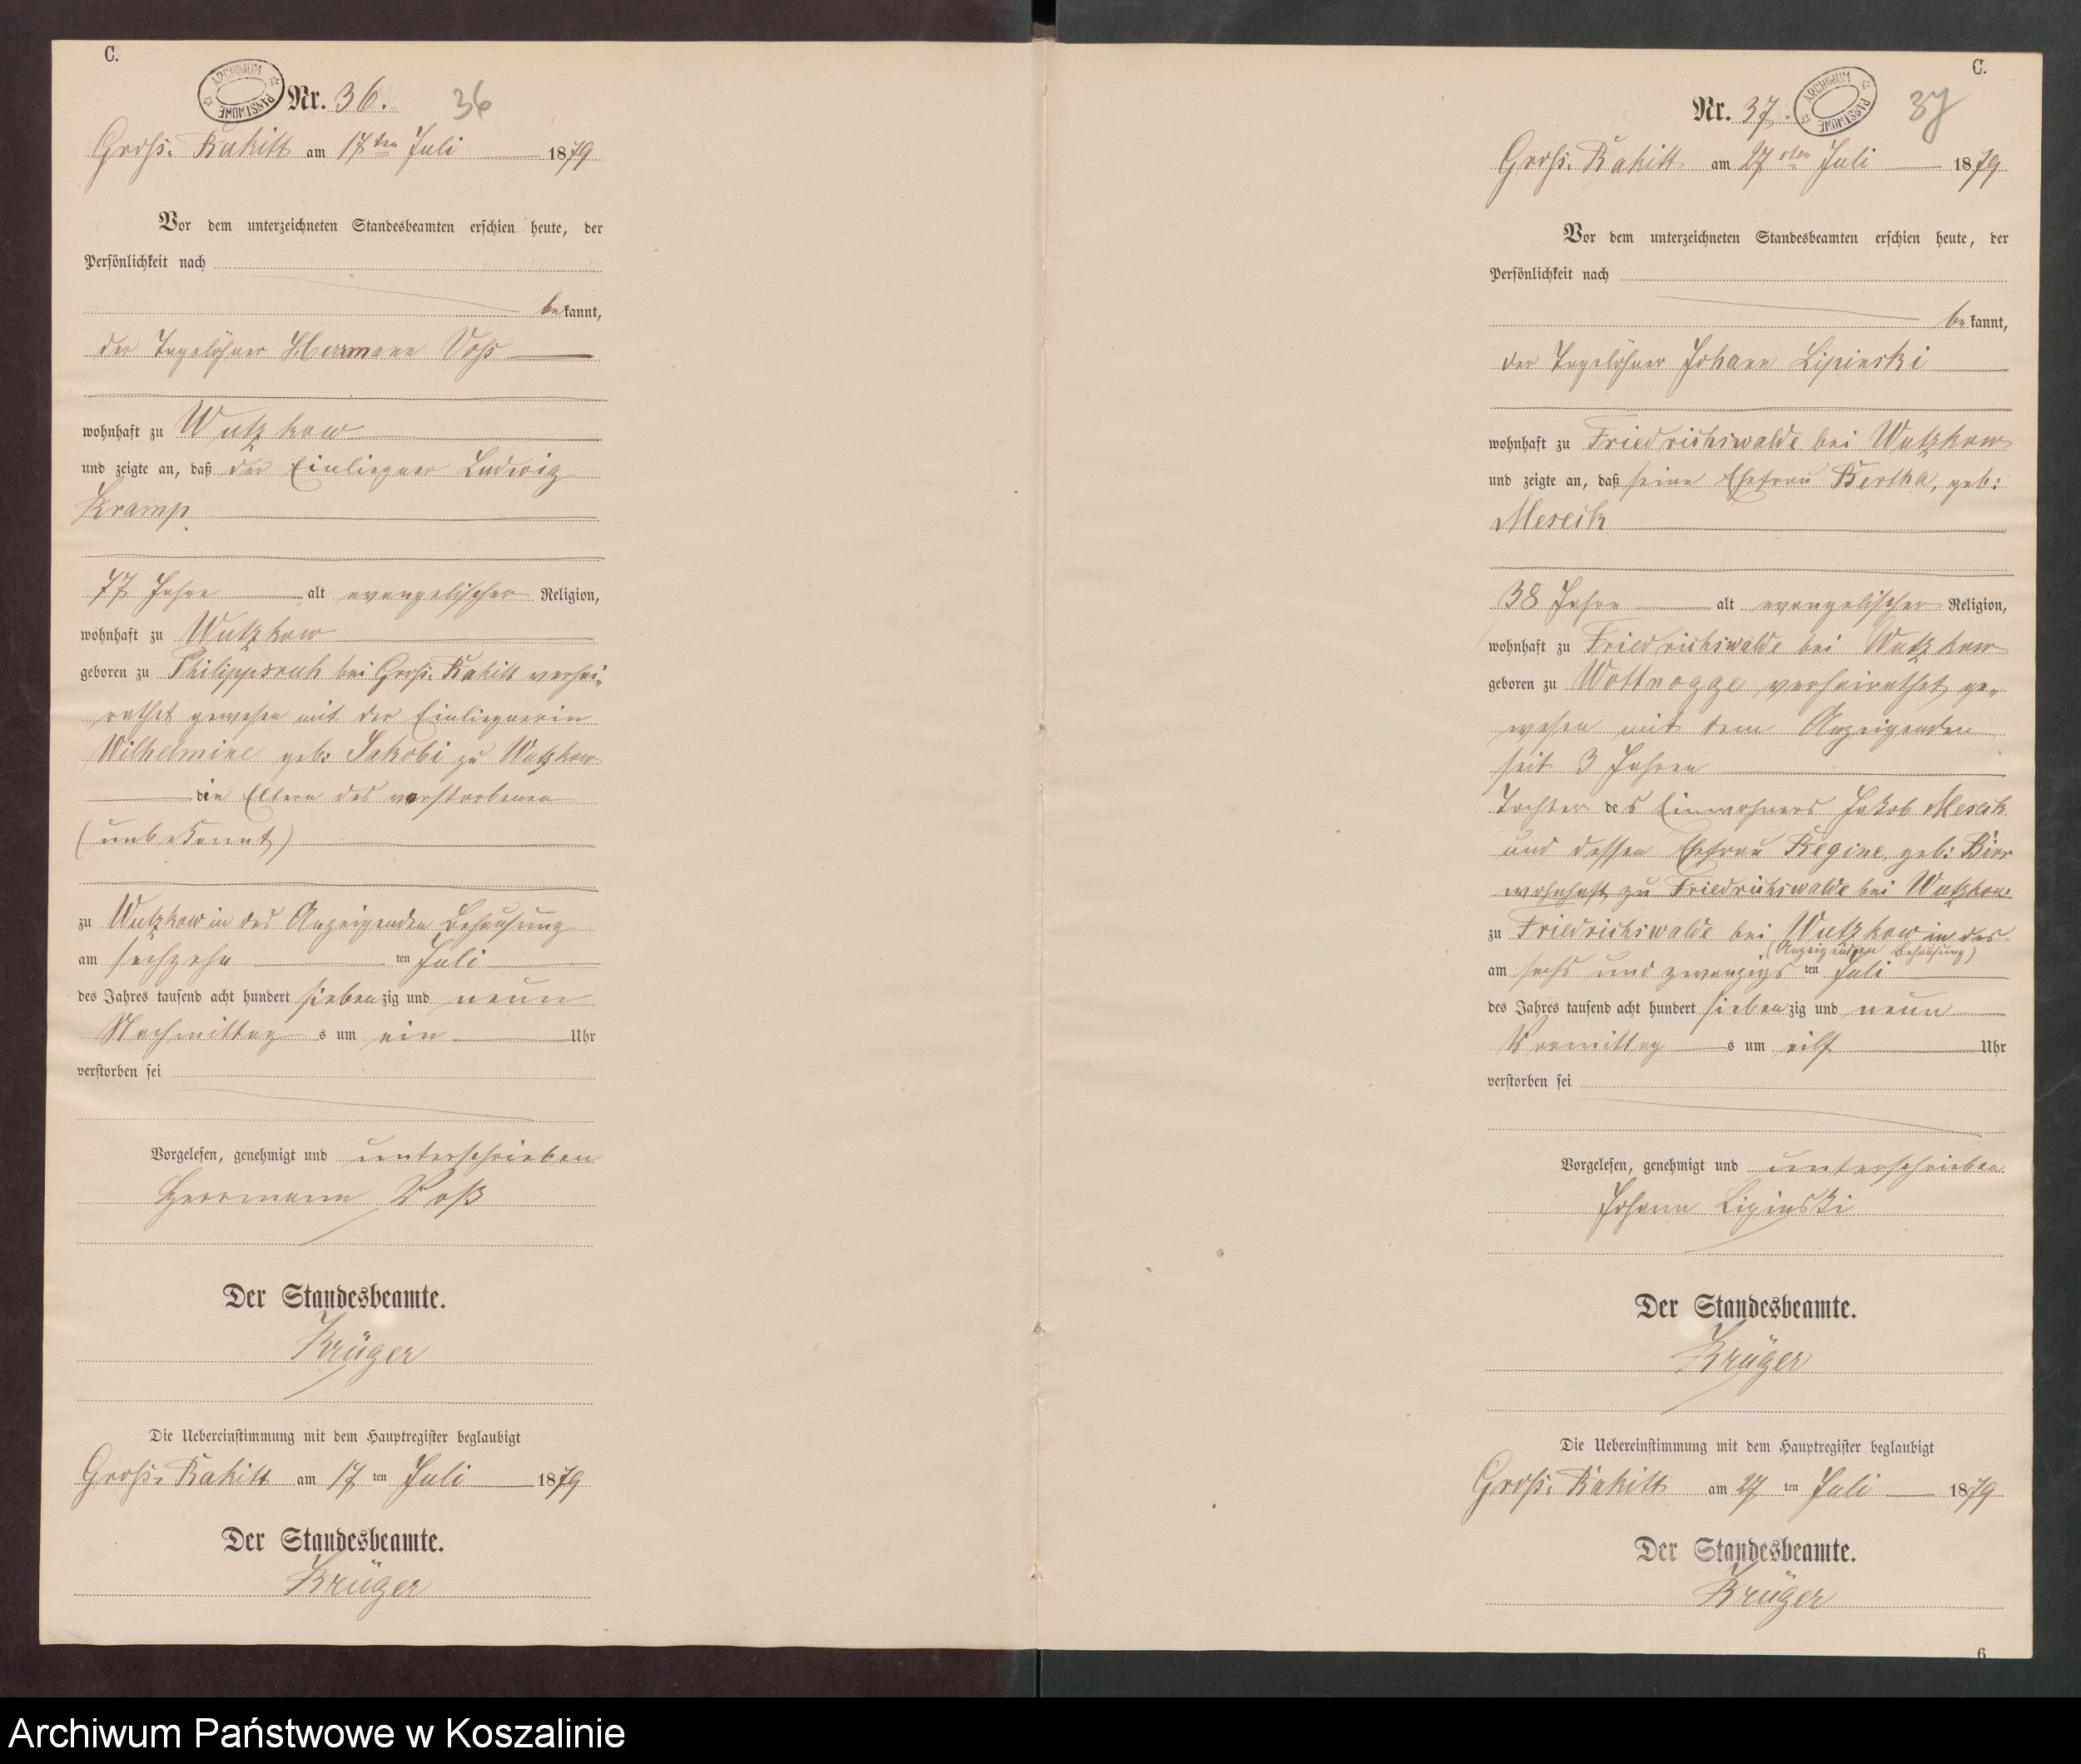 C.
ARCHIWUM PAŃSTWOWE
Nr. 36. 36
Groß-Rakitt am 17ten Juli 1879
Vor dem unterzeichneten Standesbeamten erschien heute, der
Persönlichkeit nach
bekannt,
der Tagelöhner Herrmann Voß
wohnhaft zu Wutzkow
und zeigte an, daß der Einliegner Ludwig
Kramp
77 Jahre alt evangelischer Religion,
wohnhaft zu Wutzkow
geboren zu Philippsruh bei Groß-Rakitt verhei„
rathet gewesen mit der Einliegnerin
Wilhelmine geb: Jakobi zu Wutzkow
die Eltern des verstorbenen
(unbekannt)
zu Wutzkow in des Anzeigenden Behausung
am sechzehn ten Juli
des Jahres tausend acht hundert siebenzig und neun
Nachmittag s um ein Uhr
verstorben sei
Vorgelesen, genehmigt und unterschrieben
Herrmann Voß
Der Standesbeamte.
Krüger
Die Uebereinstimmung mit dem Hauptregister beglaubigt
Groß-Rakitt am 17 ten Juli 1879
Der Standesbeamte.
Krüger
C.
Nr. 37. ARCHIWUM PAŃSTWOWE 37
Groß-Rakitt am 27sten Juli 1879
Vor dem unterzeichneten Standesbeamten erschien heute, der
Persönlichkeit nach
bekannt,
der Tagelöhner Johann Lipinski
wohnhaft zu Friedrichswalde bei Wutzkow
und zeigte an, daß seine Ehefrau Bertha, geb:
Meseck
38 Jahre alt evangelischer Religion,
wohnhaft zu Friedrichswalde bei Wutzkow
geboren zu Wottnogge verheirathet ge„
wesen mit dem Anzeigenden
seit 3 Jahren
Tochter des Einwohners Jakob Meseck
und dessen Ehefrau Regine, geb:
wohnhaft zu Friedrichswalde bei Wutzkow
zu Friedrichswalde bei Wutzkow in des
(Anzeigenden Behausung)
am sechs und zwanzigs ten Juli
des Jahres tausend acht hundert siebenzig und neun
Vormittag s um eilf Uhr
verstorben sei
Vorgelesen, genehmigt und unterschrieben
Johann Lipinski
Der Standesbeamte.
Krüger
Die Uebereinstimmung mit dem Hauptregister beglaubigt
Groß-Rakitt am 27 ten Juli 1879
Der Standesbeamte.
Krüger
6
Archiwum Państwowe w Koszalinie